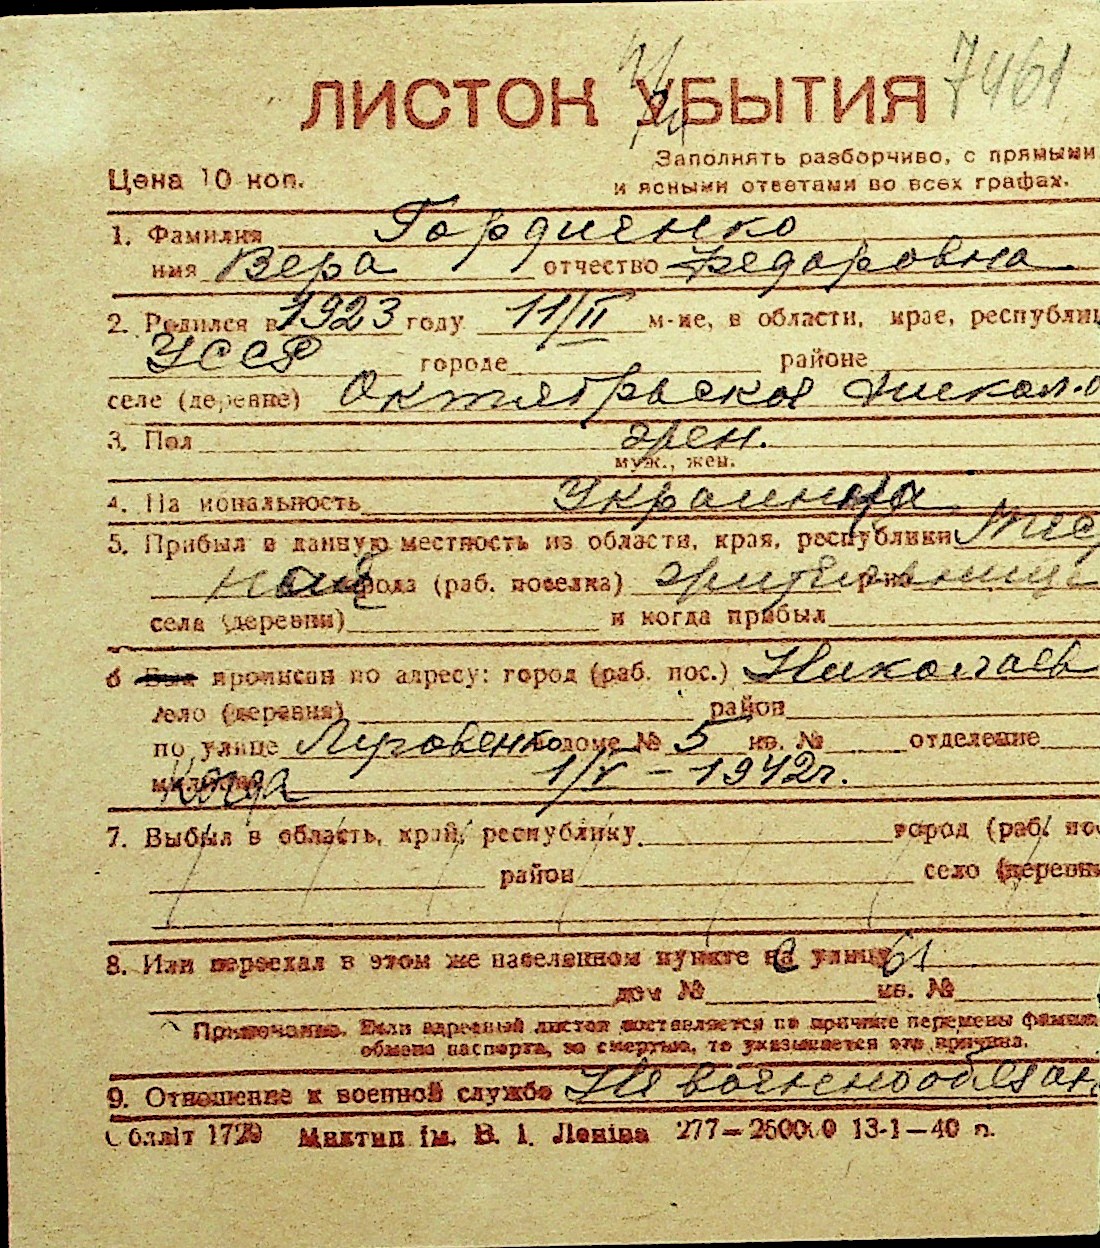 7461
ЛИСТОК УБЫТИЯ
Заполнять разборчиво, с прямыми
Цена 10 коп.
и ясными ответами во всех графах.
1. Фамилия Гордиенко
имя Вера отчество Федоровна
2. Родился в 1923 году 11/II м-це, в области, крае, республик
УССР городе районе
селе (деревне) Октябрьское Никол. о
3. Пол жен.
муж., жен.
4. Национальность Украинка
5. Прибыл в данную местность из области, края, республики
города (раб. поселка) р-на
села (деревни) и когда прибыл
6 Был прописан по адресу: город (раб. пос.) Николаев
село (деревня) район
по улице в доме № 5 кв. № отделение
милиции Когда 1/V – 1942г.
7. Выбыл в область, край, республику город (раб. пос
район село (деревн
8. Или переехал в этом же населенном пункте на улицу 61
дом № кв. №
Примечание. Если адресный листок составляется по причине перемены фамили
обмена паспорта, за смертью, то указывается эта причина.
9. Отношение к военной службе Не военнообязан
Облліт 1729 Миктип ім. В. І. Леніна 277–260000 13-1–40 п.